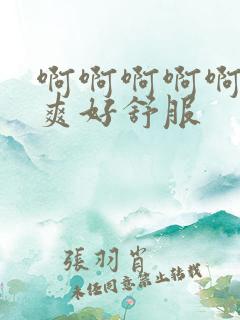 啊啊啊啊啊
爽好舒服
張羽肖
未经同意禁止转载